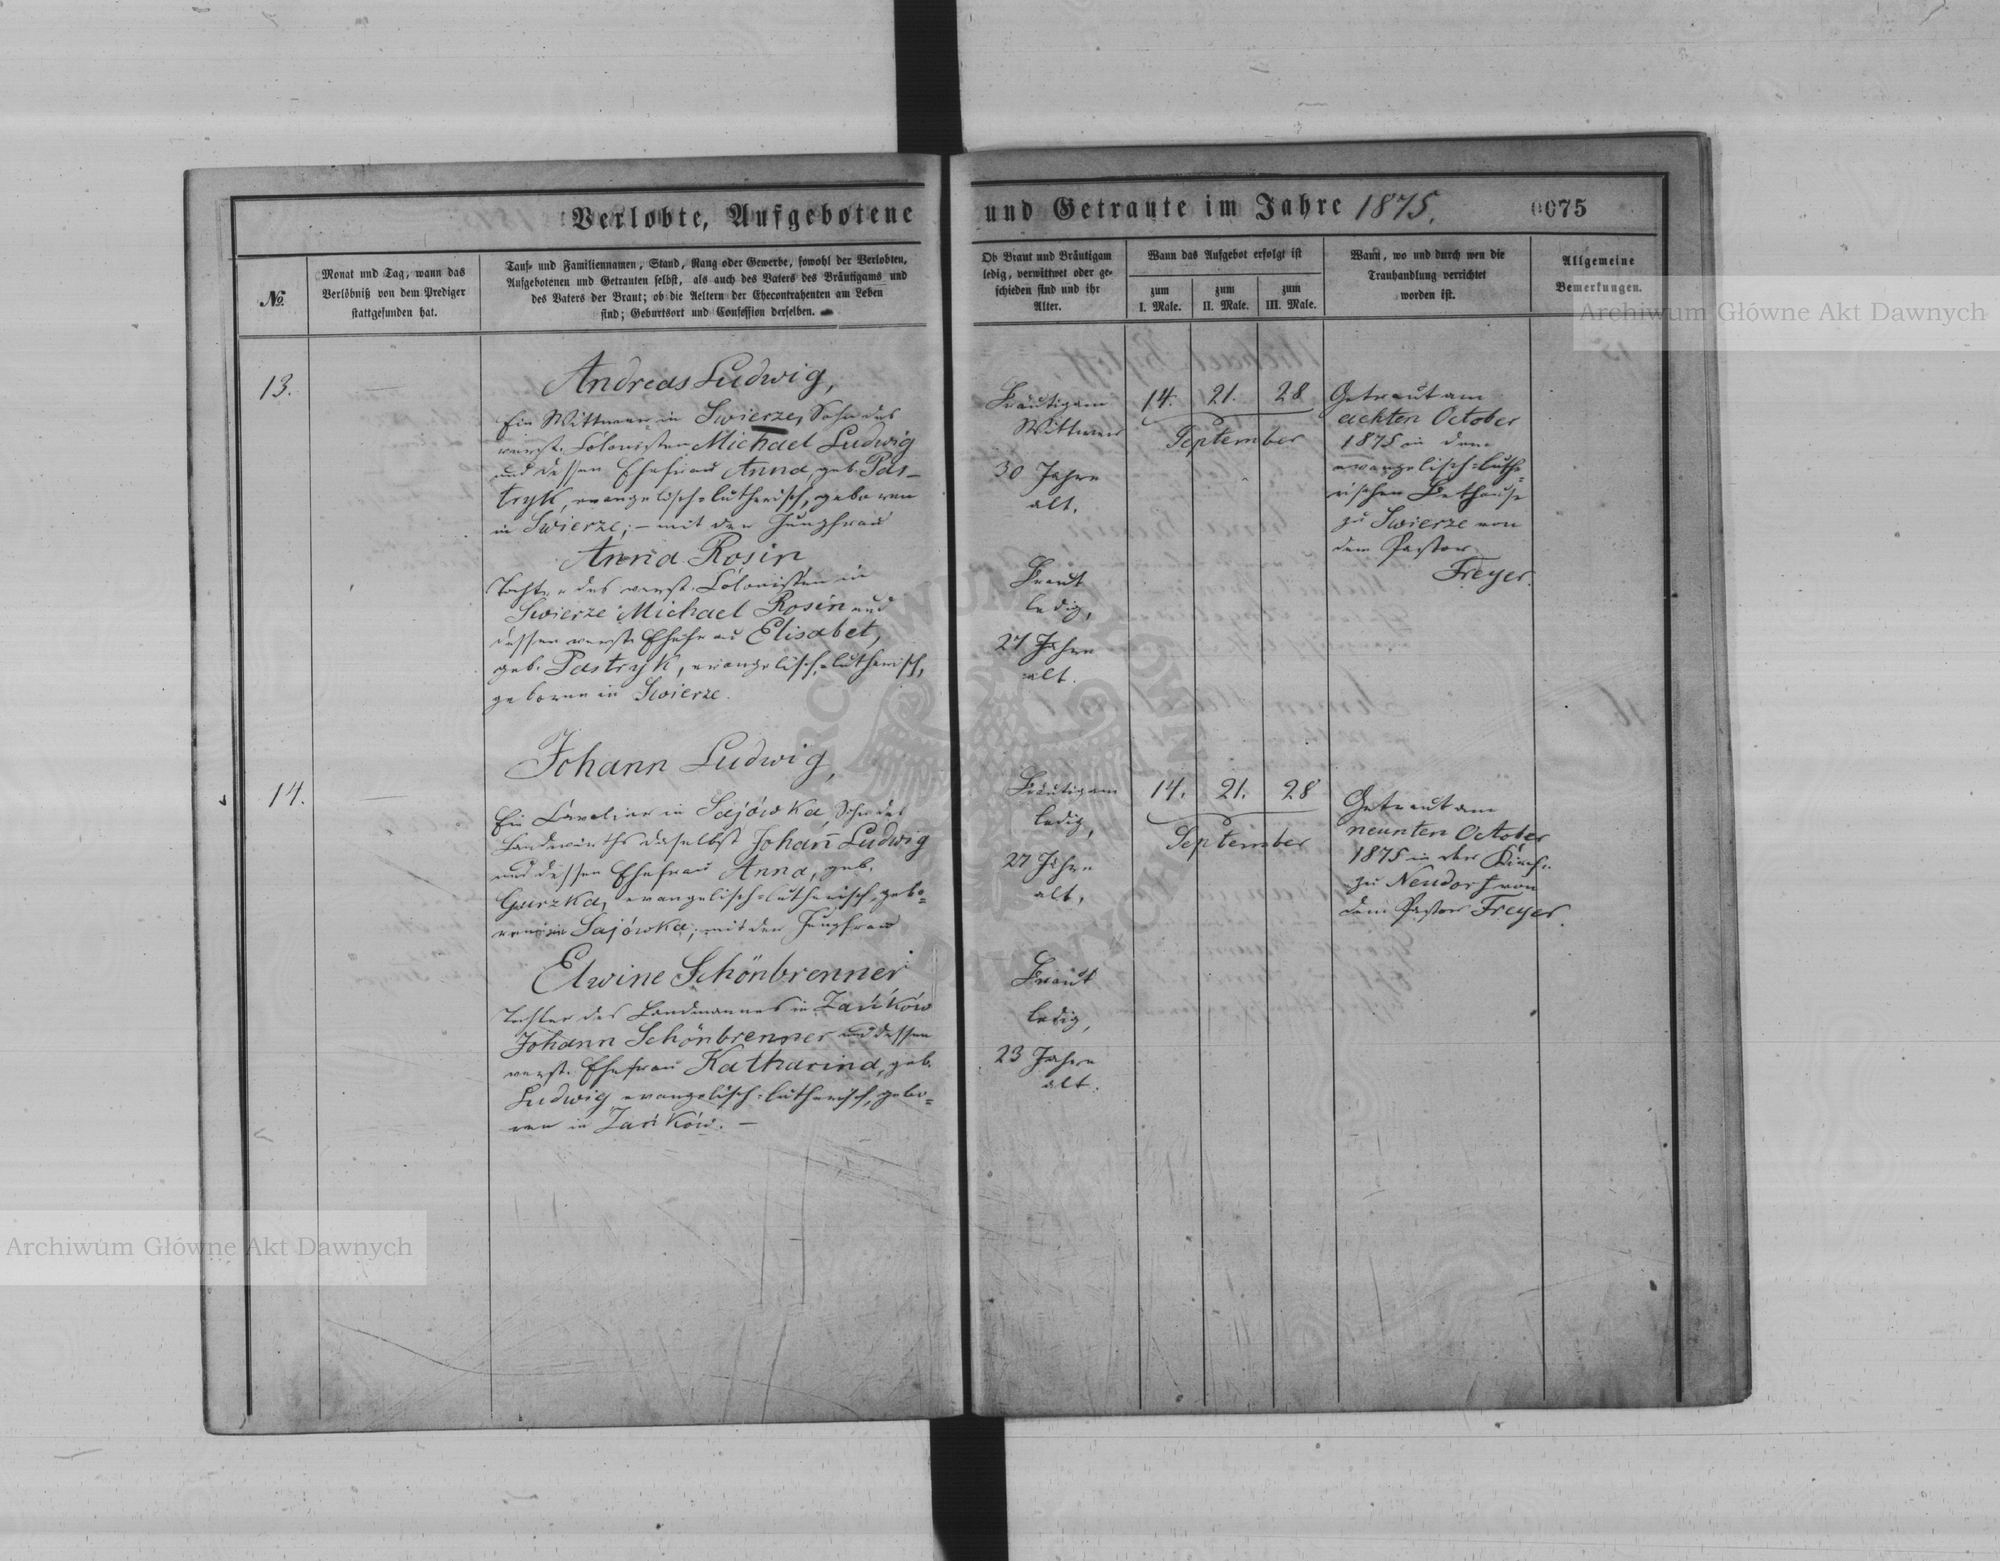 Verlobte, Aufgebotene und Getraute im Jahre 1875.
0075
№.
Monat und Tag, wann das
Verlöbniß von dem Prediger
stattgefunden hat.
Tauf- und Familiennamen, Stand, Rang oder Gewerbe, sowohl der Verlobten,
Aufgebotenen und Getrauten selbst, als auch des Vaters des Bräutigams und
des Vaters der Braut; ob die Aeltern der Ehecontrahenten am Leben
sind; Geburtsort und Confession derselben.
Ob Braut und Bräutigam
ledig, verwittwet oder ge-
schieden sind und ihr
Alter.
Wann das Aufgebot erfolgt ist
zum
I. Male.
zum
II. Male.
zum
III. Male.
Wann, wo und durch wen die
Trauhandlung verrichtet
worden ist.
Allgemeine
Bemerkungen.
13.
Andreas Ludwig,
Ein Wittwer in Swierze, Sohn des
verst. Colonisten Michael Ludwig
und dessen Ehefrau Anna, geb. Pas-
tryk, evangelisch-lutherisch, geboren
in Swierze; – mit der Jungfrau
Anna Rosin
Tochter des verst. Colonisten in
Swierze Michael Rosin und
dessen verst. Ehefrau Elisabet,
geb. Pastryk, evangelisch-lutherisch,
geboren in Swierze.
Bräutigam
Wittwer
30 Jahre
alt.
Braut
ledig,
27 Jahre
alt.
14. 21. 28
September
Getraut am
achten October
1875 in dem
evangelisch-luthe-
rischen Bethause
zu Swierze von
dem Pastor
Freyer.
14.
Johann Ludwig,
Ein Cavalier in Sajówka, Sohn des
Landwirths daselbst Johañ Ludwig
und dessen Ehefrau Anna, geb.
Gurzka, evangelisch-lutherisch, gebo-
ren in Sajówka; mit der Jungfrau
Elwine Schönbrenner
Tochter des Landmannes in
Johann Schönbrenner und dessen
verst. Ehefrau Katharina, geb.
Ludwig evangelisch-lutherisch, gebo-
ren in
Bräutigam
ledig,
27 Jahre
alt,
Braut
ledig,
23 Jahre
alt.
14. 21. 28
September
Getraut am
neunten October
1875 in der Kirche
zu Neudorf von
dem Pastor Freyer.
Archiwum Główne Akt Dawnych
Archiwum Główne Akt Dawnych